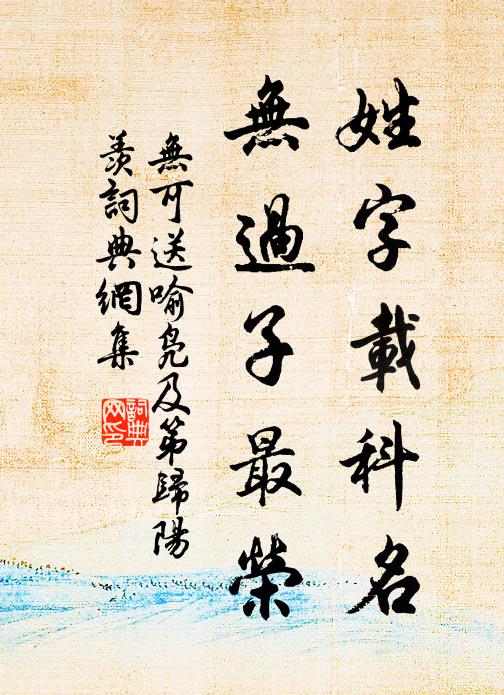 姓字載科名
無過子最榮
無可送喻凫及第歸陽
羨詞典網集
詞典
网印